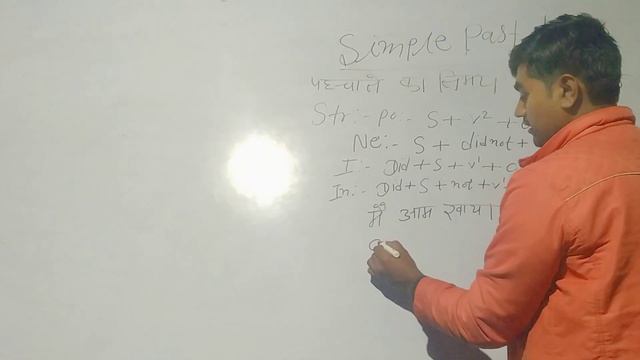 Simple Past
पहचान का नियम
Str:- Po:- S + V² +
Ne:- S + didnot +
I:- Did + S + V¹ + O
In:- Did + S + not + V¹
मैं आम खाया।